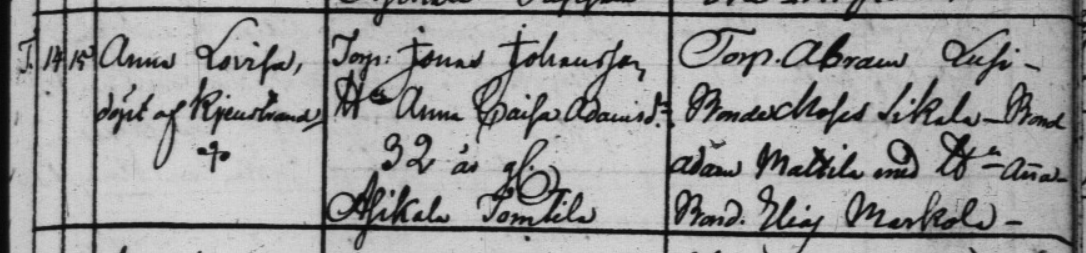 T. 14 15 Anna Lovisa,
döpt af
Torp: Jonas Johansson,
H:u Anna Caisa Adamsd:r
32 år gl.
Asikala Tomtila
Torp. Abram Lusi-
Bonde Moses Sikala - Bond
Adam Mattila med H:u Aña-
Bond. Elias Markola -